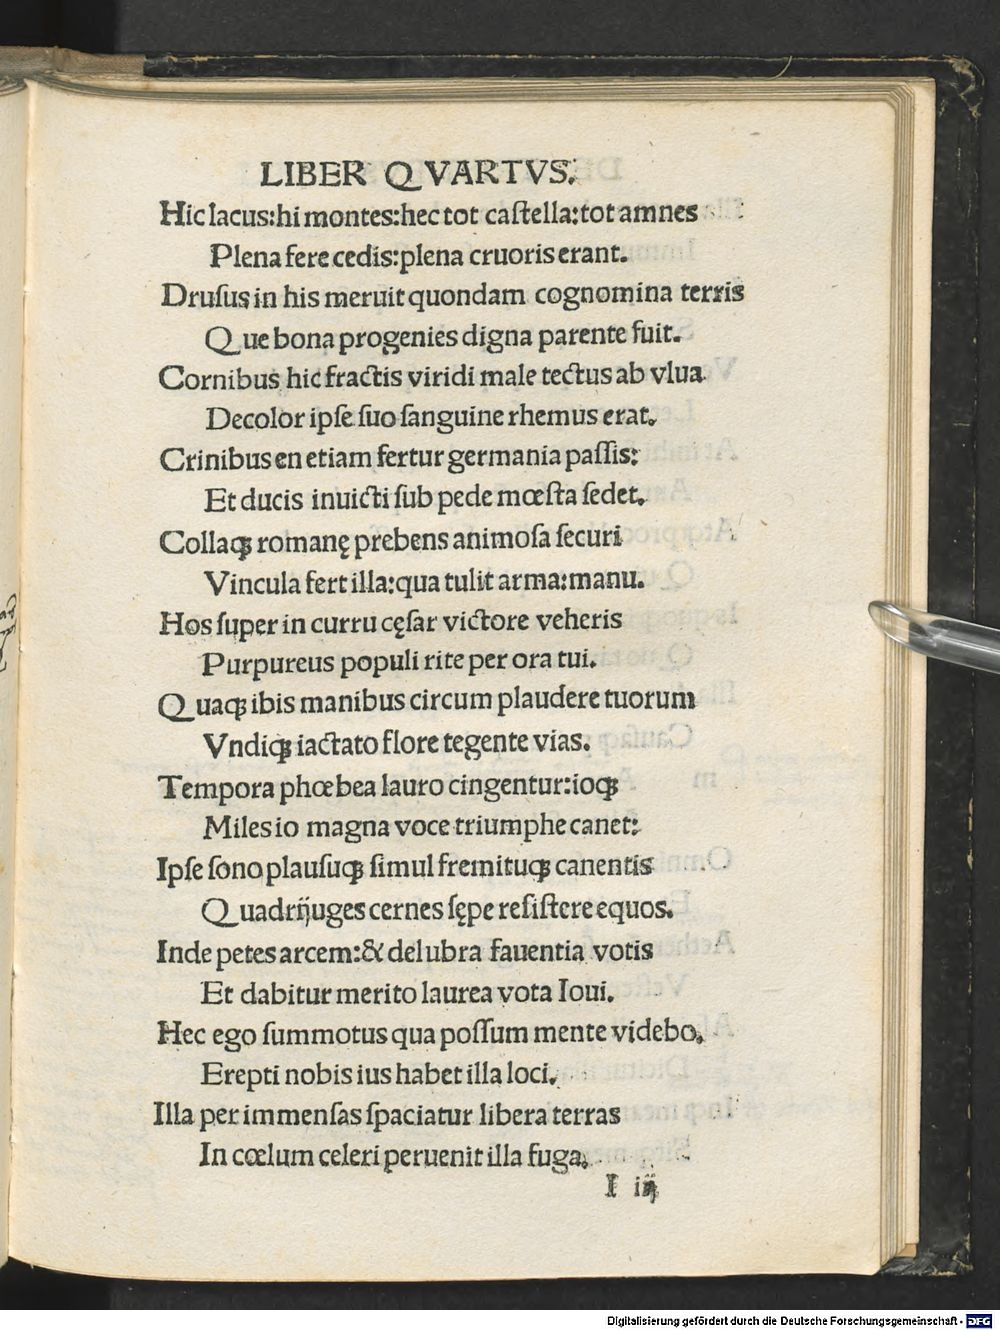 LIBER QVARTVS.
Hic lacus:hi montes:hec tot caſtella:tot amnes
Plena fere cedis:plena cruoris erant.
Druſus in his meruit quondam cognomina terris
Que bona progenies digna parente fuit.
Cornibus hic fractis viridi male tectus ab vlua
Decolor ipſe ſuo ſanguine rhemus erat.
Crinibus en etiam fertur germania paſſis:
Et ducis inuicti ſub pede mœſta ſedet.
Collaꝗ romanę prebens animoſa ſecuri
Vincula fert illa:qua tulit arma:manu.
Hos ſuper in curru cęſar victore veheris
Purpureus populi rite per ora tui.
Quaꝗ ibis manibus circum plaudere tuorum
Vndiꝗ iactato flore tegente vias.
Tempora phœbea lauro cingentur:ioꝗ
Miles io magna voce triumphe canet:
Ipſe ſono plauſuꝗ ſimul fremituꝗ canentis
Quadriĳuges cernes ſępe reſiſtere equos.
Inde petes arcem:& delubra fauentia votis
Et dabitur merito laurea vota Ioui.
Hec ego ſummotus qua poſſum mente videbo.
Erepti nobis ius habet illa loci.
Illa per immenſas ſpaciatur libera terras
In cœlum celeri peruenit illa fuga.
I iĳ
Digitalisierung gefördert durch die Deutsche Forschungsgemeinschaft - DFG